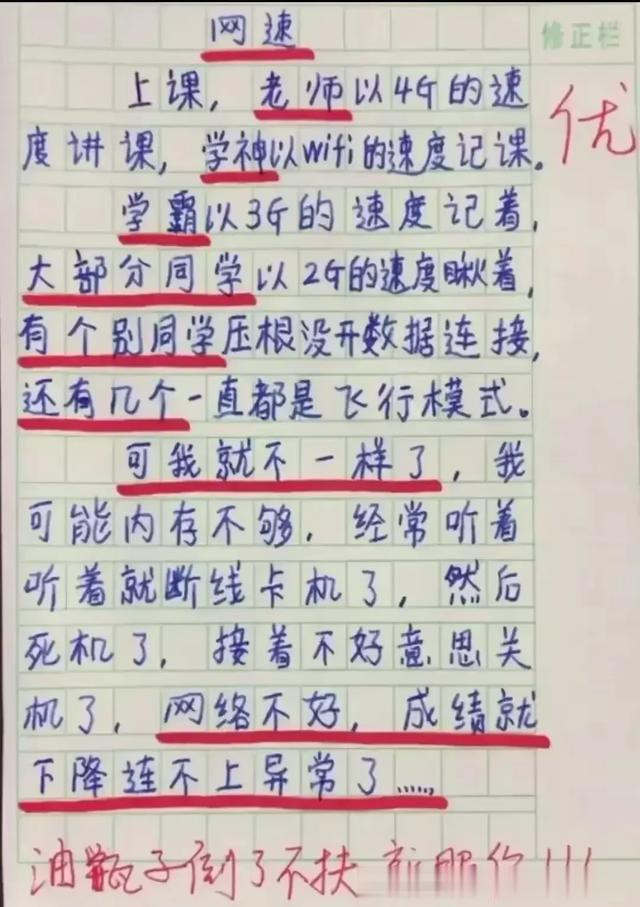 网速
修正栏
上课，老师以4G的速
优
度讲课，学神以wifi的速度记课。
学霸以3G的速度记着，
大部分同学以2G的速度瞅着，
有个别同学压根没开数据连接，
还有几个一直都是飞行模式。
可我就不一样了，我
可能内存不够，经常听着
听着就断线卡机了，然后
死机了，接着不好意思关
机了，网络不好，成绩就
下降连不上异常了……
油瓶子倒了不扶 就服你!!!